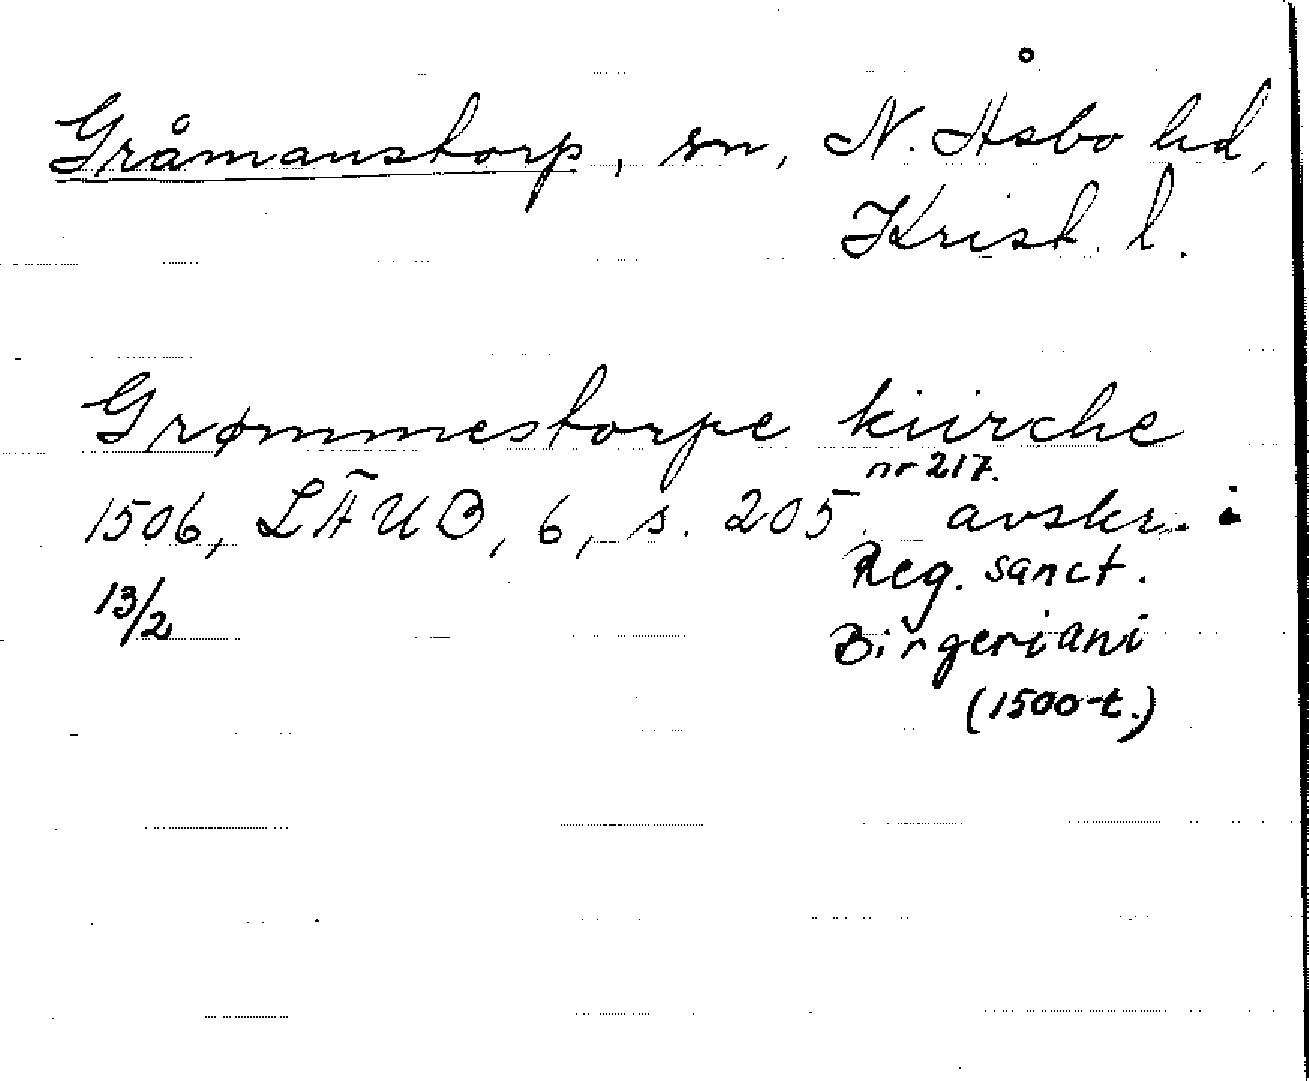 Gråmanstorp, sn, N. Åsbo hd,
Krist. l.
Grømmestorpe kiirche
nr 217.
1506, LÄUB, 6, s. 205. avskr. i
13/2 Reg. sanct.
Birgeriani
(1500-t.)